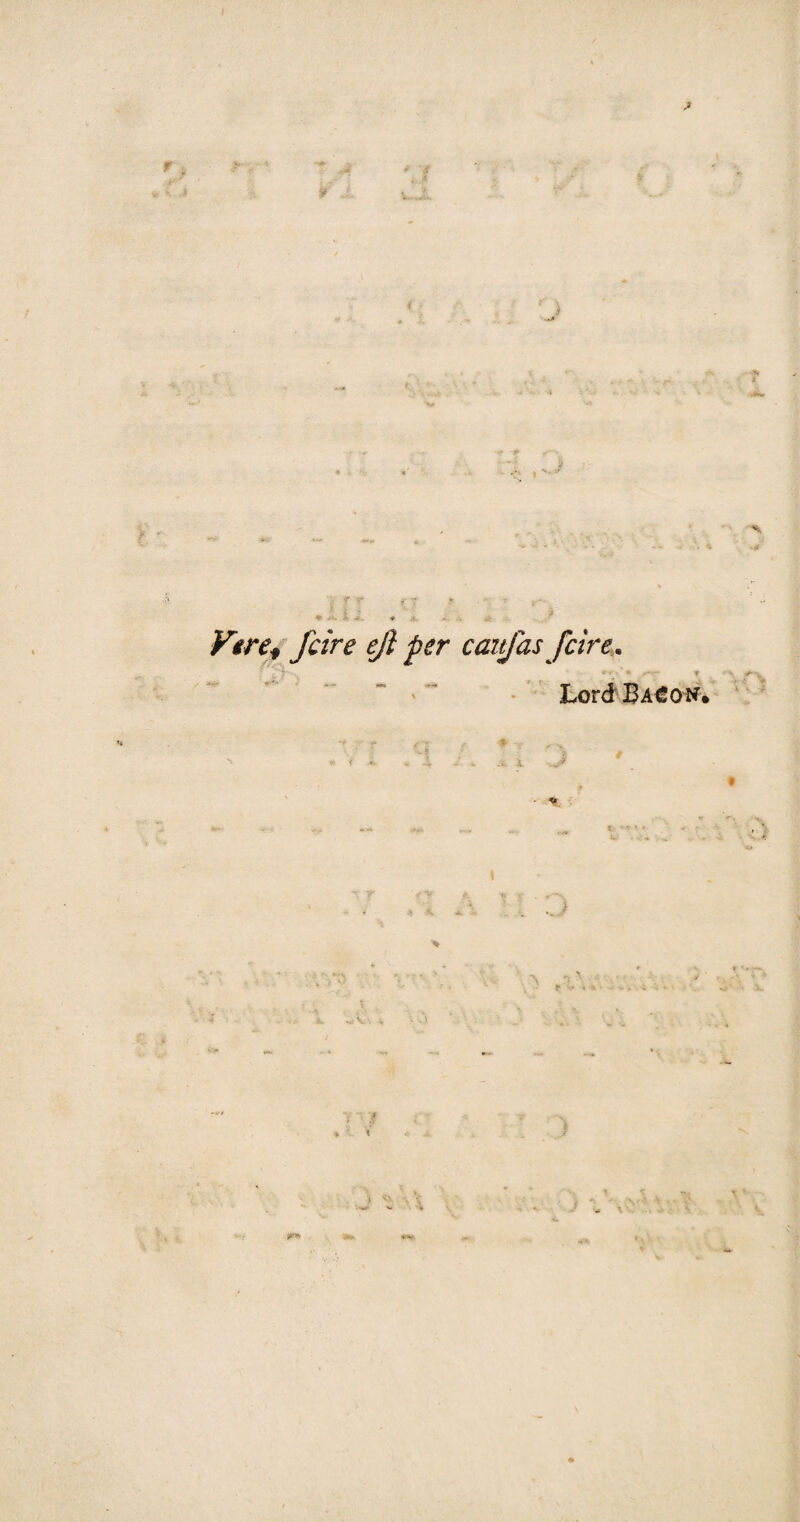 Vere, ſcire eſt per cauſas ſcire.
Lord BACON.